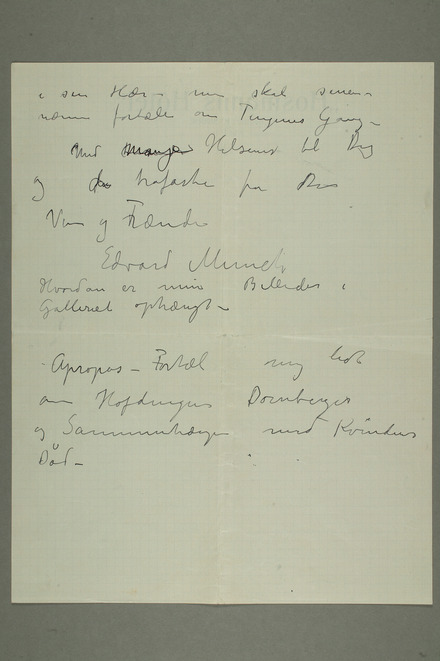 i sin Hær – min skal senere
nævne fortælle om Tingenes Gang –
Med mange Hilsener til Dig
og fra
Ven og Frænde
Edvard Munch
Hvordan er mine Billeder i
Galleriet ophængt –
Apropos – Fortæl mig lidt
om Høfdingen Dornberger
og Sammenhængen med Kvindens
Død –